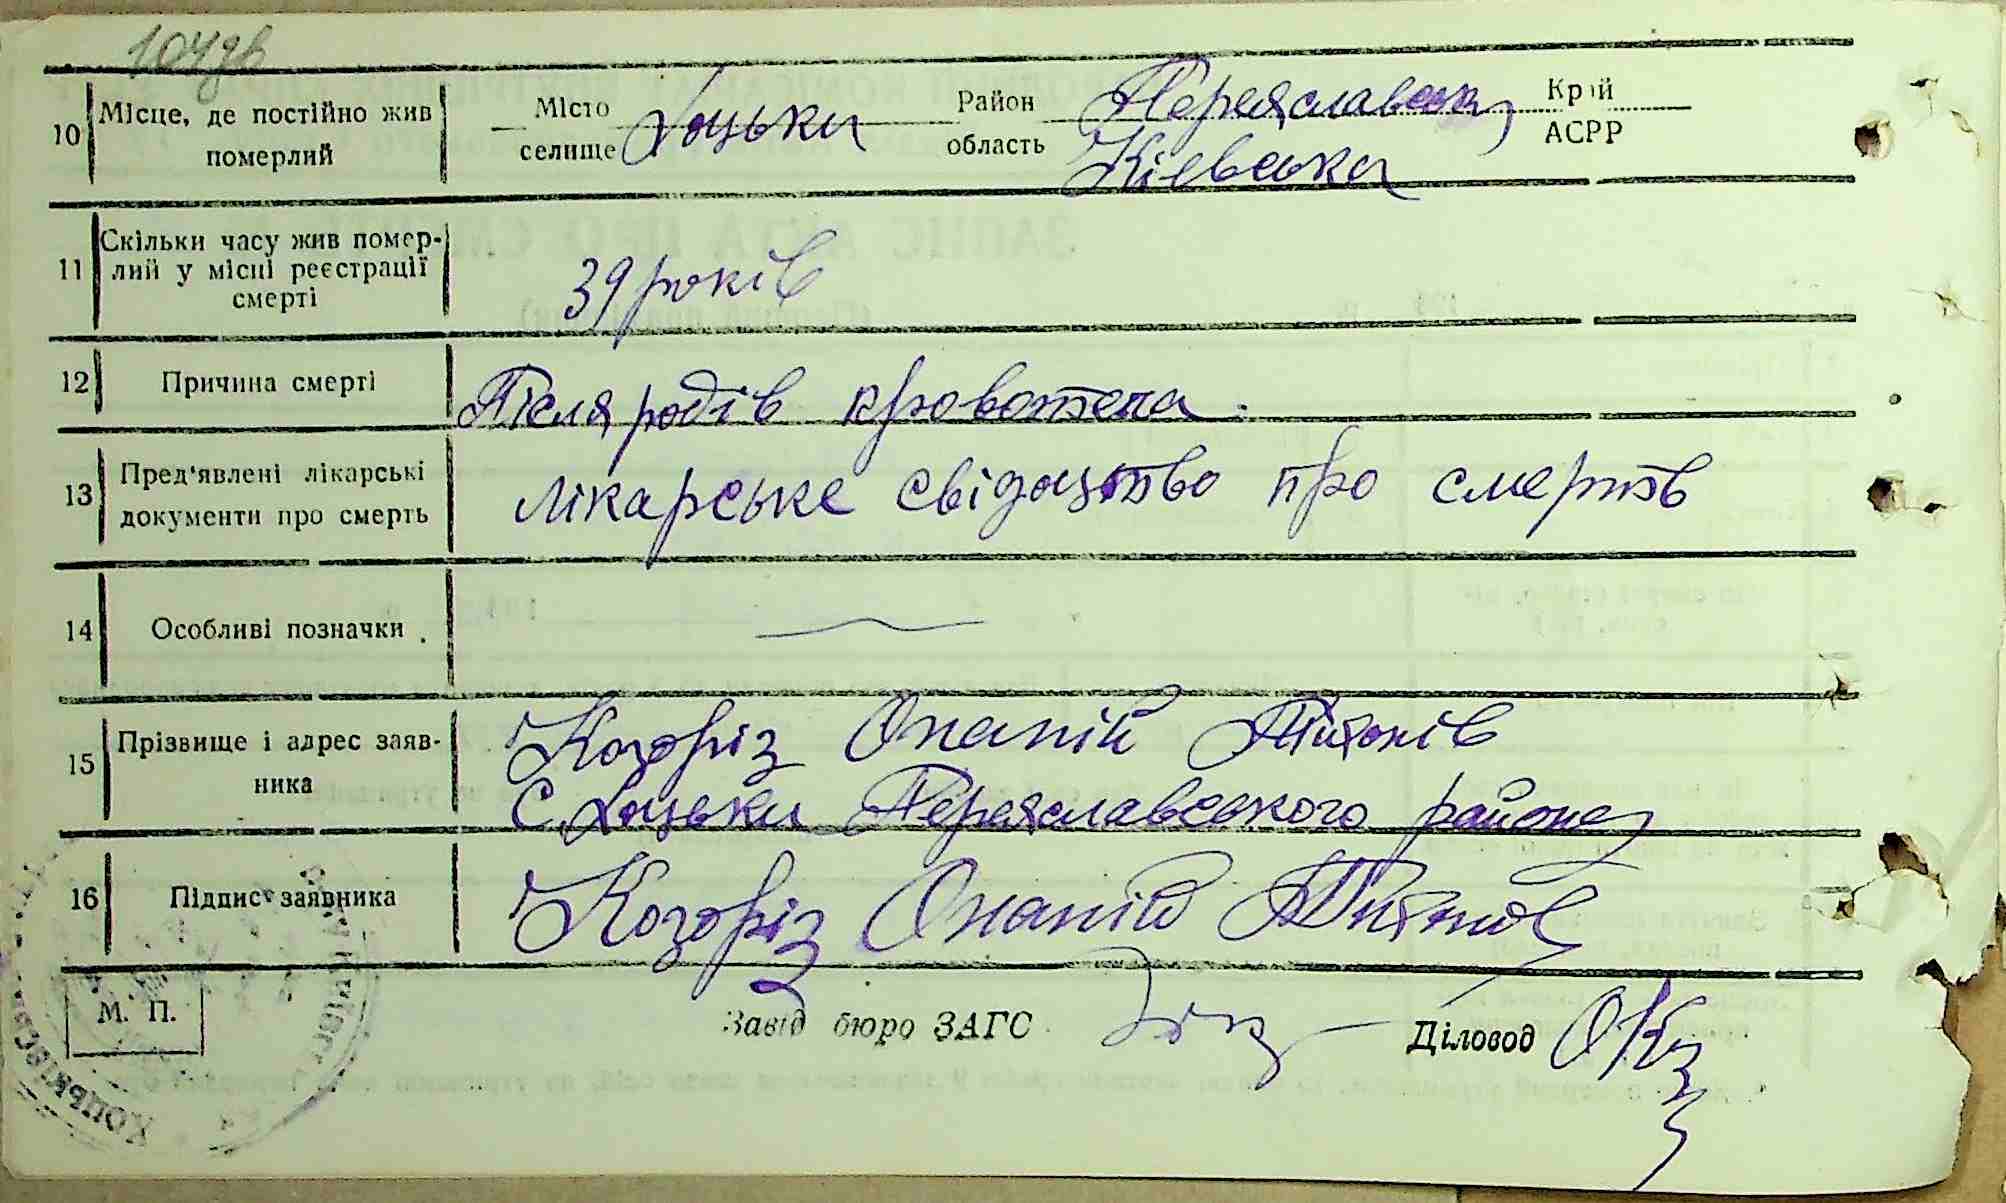 104зв
10 Місце, де постійно жив померлий
Місто селище Хоцьки Район область Переяславськ Київська Край АСРР
11 Скільки часу жив помер-
лий у місці реєстрації
смерті
39 років
12 Причина смерті Після родів кровотеча.
13 Пред'явлені лікарські
документи про смерть
лікарське свідоцтво про смерть
14 Особливі позначки
15 Прізвище і адрес заяв-
ника
Козоріз Опаній
С. Хоцьки Переяславського району
16 Підпис заявника Козоріз Опаній
М. П. Завід бюро ЗАГС Діловод